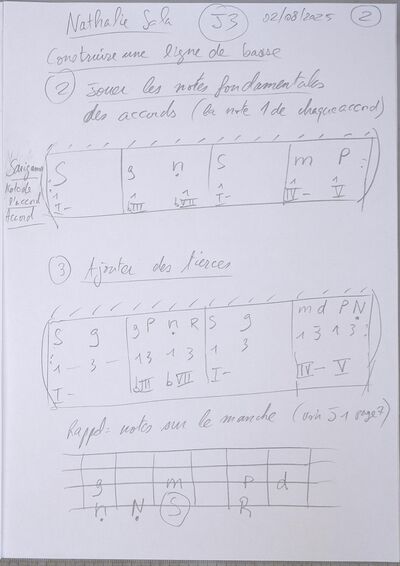 Nathalie Sala J3 02/08/2025 2
Construire une ligne de basse
2 Jouer les notes fondamentales
des accords (la note 1 de chaque accord)
Sarigama S g n S m P
Note de l'accord 1 1 1 1 1 1
Accord I- bIII bVII I- IV- V
3 Ajouter des tierces
S g g P n R S g m d P N
1 - 3 - 1 3 1 3 1 3 1 3 1 3
I- bIII bVII I- IV- V
Rappel: notes sur le manche (voir J1 page 7)
g m P d
n N S R